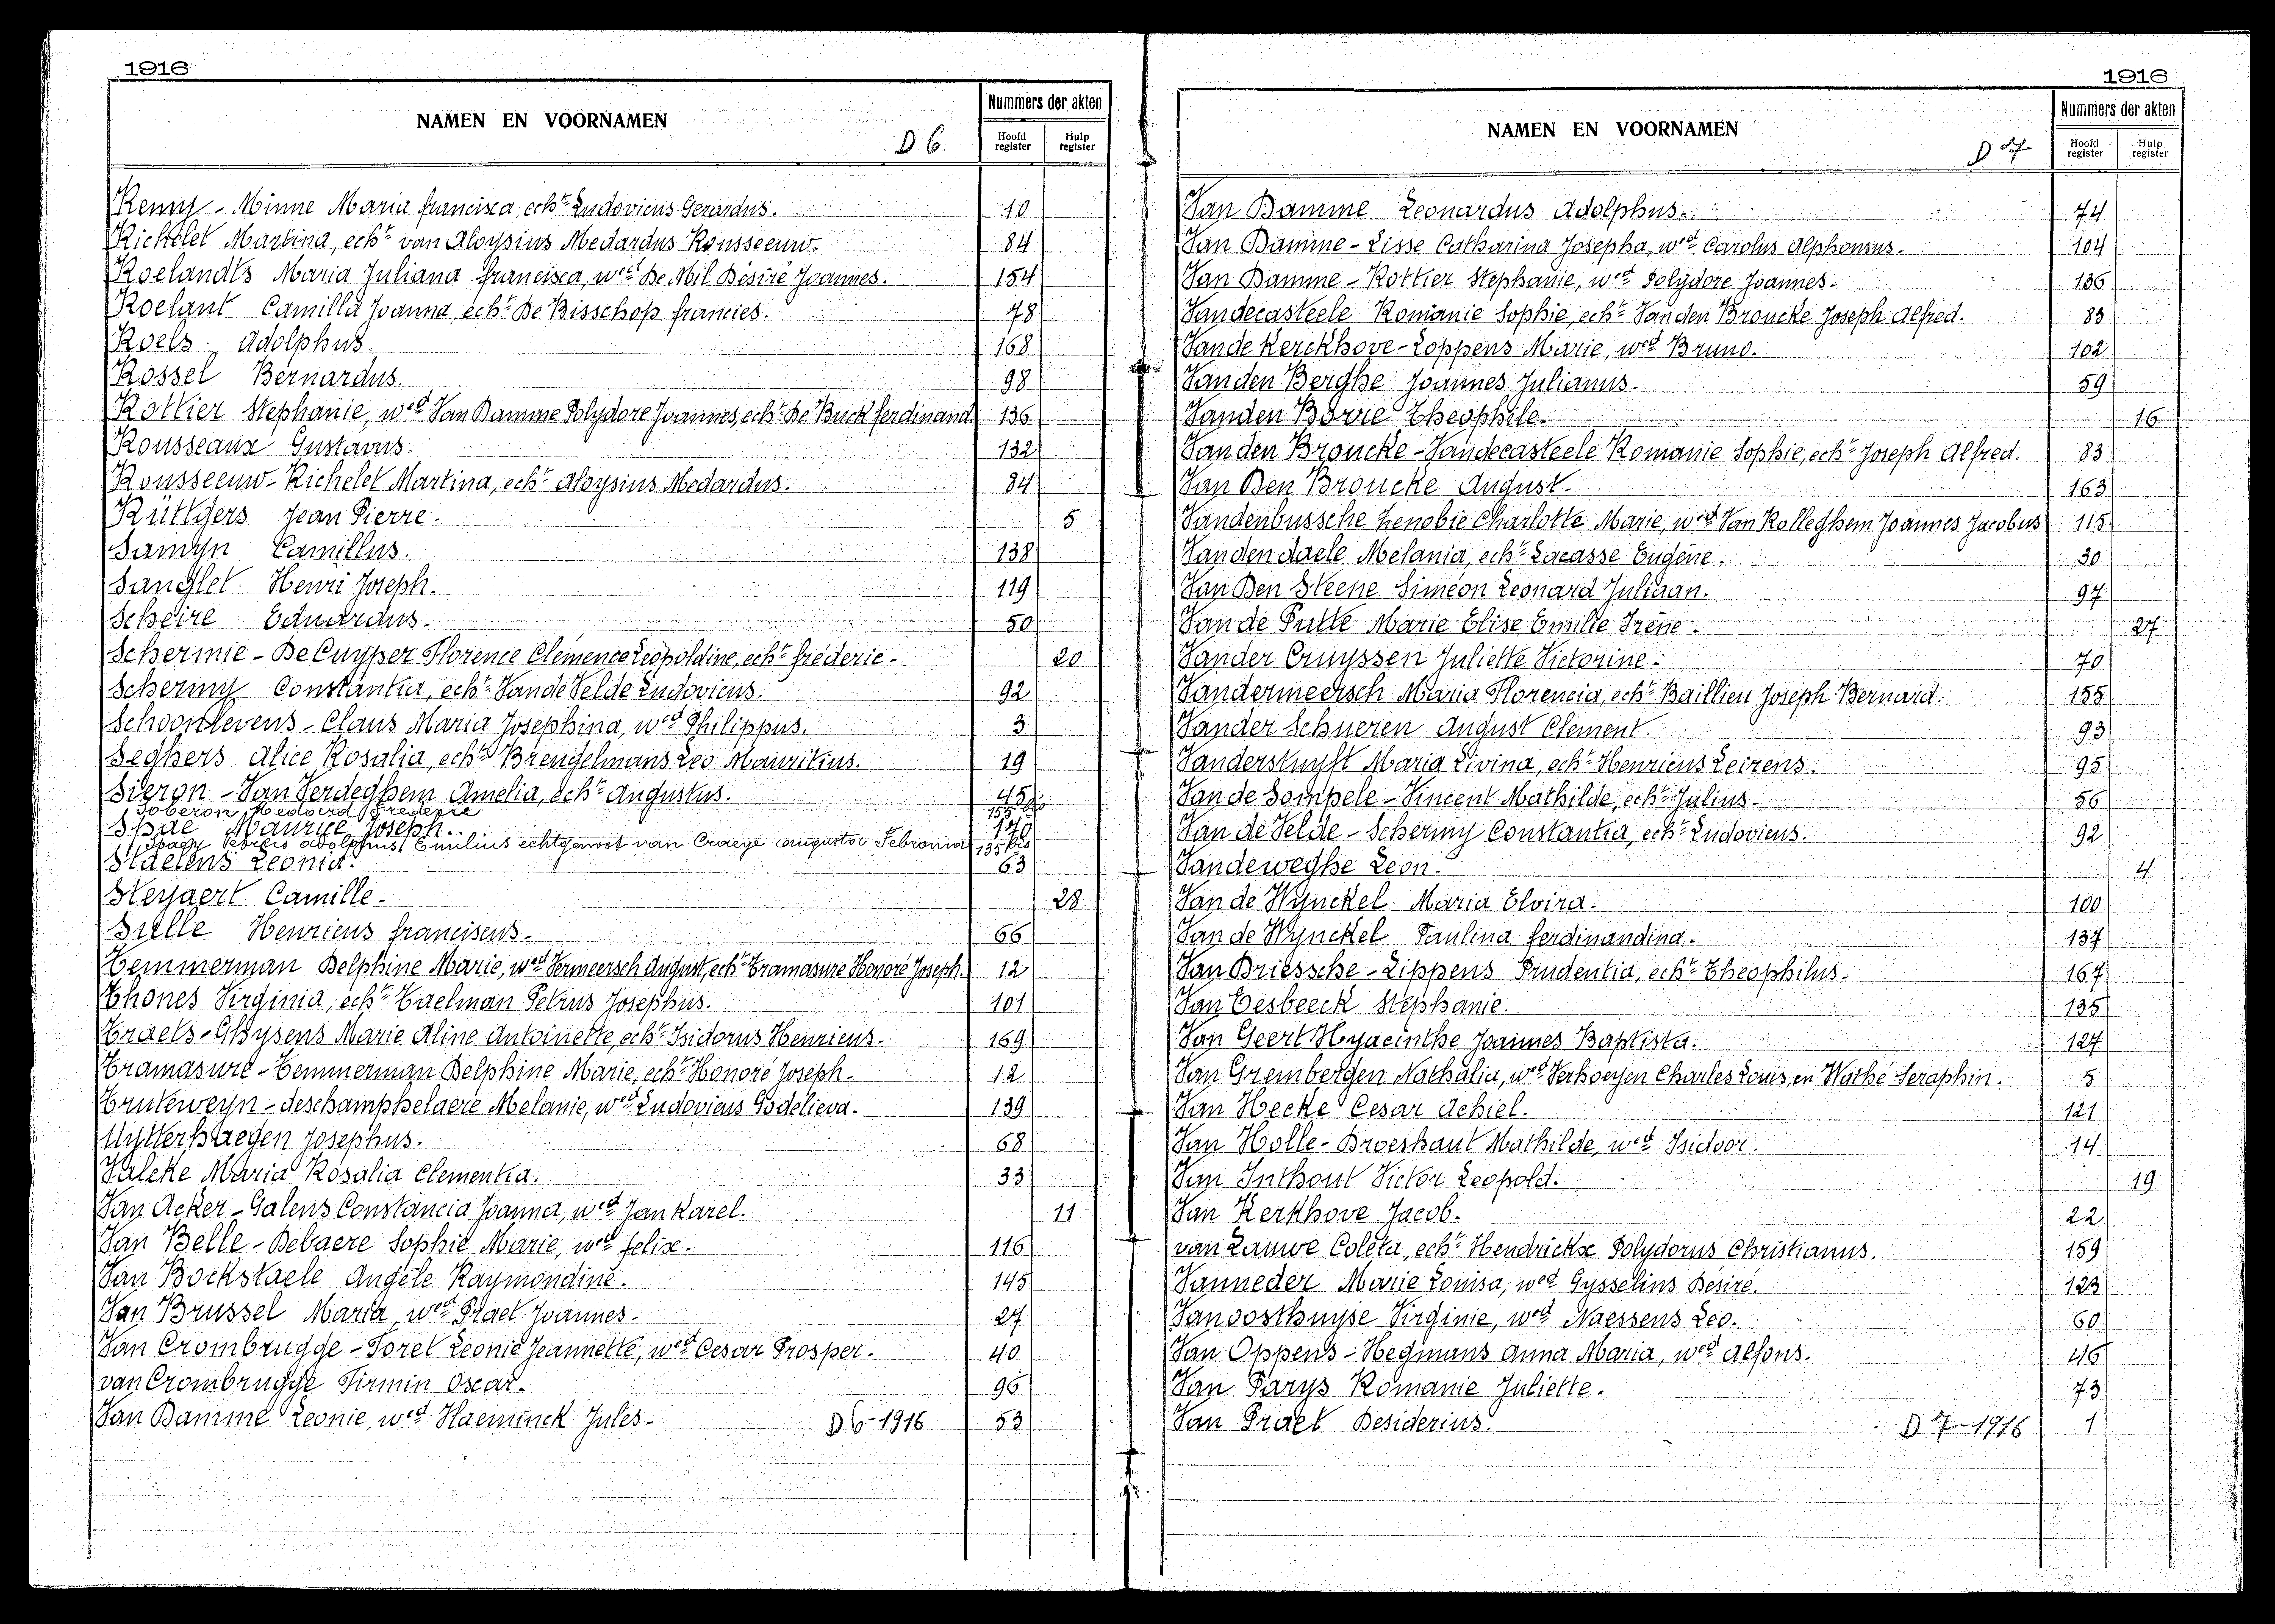 1916
NAMEN EN VOORNAMEN
D 6
Nummers der akten
Hoofd register
Hulp register
Remy - Minne Maria francisca echt. Ludovicus Gerardus. 10
Richelet Martina, echt. van Aloysius Medardus Rousseeuw. 84
Roelandts Maria Juliana francisca, wed. De Mil Désiré Joannes. 154
Roelant Camilla Joanna, echt. De Bisschop francies. 78
Roels Adolphus. 168
Rossel Bernardus. 98
Rottier Stephanie, wed. Van Damme Polydore Joannes, echt. De Buck ferdinand. 136
Rousseaux Gustavus. 132
Rousseeuw - Richelet Martina, echt. Aloysius Medardus. 84
Rüttgers Jean Pierre. 5
Samyn Camillus. 138
Sanglet Henri Joseph. 119
Scheire Eduardus. 50
Schermie - De Cuyper Florence Clémence Leopoldine, echt. fréderic. 20
Schermy Constantia, echt. Van de Velde Ludovicus. 92
Schoonlevens - Claus Maria Josephina, wed. Philippus. 3
Seghers Alice Rosalia, echt. Brengelmans Leo Mauritius. 19
Sieron - Van Verdeghem Amelia, echt. Augustus. 45
Soberon Medard Frederic 155 bis
Spae Maurice Joseph. 170
Spagy Petrus Adolphus Emilius echtgenoot van Craeye augusta Febronia 135 bis
Staelens Leonia. 63
Steyaert Camille. 28
Sulle Henricus franciscus. 66
Temmerman Delphine Marie, wed. Vermeersch August, echt. Tramasure Honoré Joseph. 12
Thones Virginia, echt. Taelman Petrus Josephus. 101
Traels - Ghysens Marie Aline Antoinette, echt. Isidorus Henricus. 169
Tramasure - Temmerman Delphine Marie, echt. Honoré Joseph. 12
Truteweyn - deschamphelaere Melanie, wed. Ludovicus Godelieva. 139
Uytterhaegen Josephus. 68
Valcke Maria Rosalia Clementia. 33
Van Acker - Galens Constancia Joanna, wed. Jan Karel. 11
Van Belle - Debaere Sophie Marie, wed. felix. 116
Van Bockstaele Angèle Raymondine. 145
Van Brussel Maria, wed. Praet Joannes. 27
Van Crombrugge - Foret Leonie Jeannette, wed. Cesar Prosper. 40
van Crombrugge Firmin Oscar. 96
Van Damme Leonie, wed. Haeminck Jules. 53
D 6 - 1916
1916
NAMEN EN VOORNAMEN
D 7
Nummers der akten
Hoofd register
Hulp register
Van Damme Leonardus Adolphus. 74
Van Damme - Lisse Catharina Josepha, wed. Carolus Alphonsus. 104
Van Damme - Rottier Stephanie, wed. Polydore Joannes. 136
Vandecasteele Romanie Sophie, echt. Vanden Broucke Joseph Alfred. 83
Van de Kerckhove - Loppens Marie, wed. Bruno. 102
Van den Berghe Joannes Julianus. 59
Vanden Borre Theophile. 16
Van den Broucke - Vandecasteele Romanie Sophie, echt. Joseph Alfred. 83
Van Den Broucke August. 163
Vandenbussche Zenobie Charlotte Marie, wed. Van Rolleghem Joannes Jacobus 115
Vanden daele Melania, echt. Lacasse Eugène. 30
Van Den Steene Siméon Leonard Juliaan. 97
Van de Putte Marie Elise Emilie Irène. 27
Vander Cruyssen Juliette Victorine. 70
Vandermeersch Maria Florencia, echt. Baillieu Joseph Bernard. 155
Vander Schueren August Clement. 93
Vanderstuyft Maria Livina, echt. Henricus Leirens. 95
Van de Sompele - Vincent Mathilde, echt. Julius. 56
Van de Velde - Schermy Constantia, echt. Ludovicus. 92
Vandeweghe Leon. 4
Van de Wynckel Maria Elvira. 100
Van de Wynckel Paulina ferdinandina. 137
Van Driessche - Lippens Prudentia, echt. Theophilus. 167
Van Eesbeeck Stephanie. 135
Van Geert Hyacinthe Joannes Baptista. 127
Van Grembergen Nathalia, wed. Verhoeyen Charles Louis, en Wathé Seraphin. 5
Van Hecke Cesar Achiel. 121
Van Holle - Broeshaut Mathilde, wed. Isidoor. 14
Van Inthout Victor Leopold. 19
Van Kerkhove Jacob. 22
van Lauwe Coleta, echt. Hendrickx Polydorus Christianus. 159
Vanneder Marie Louisa, wed. Gysselins Désiré. 123
Vanoosthuyse Virginie, wed. Naessens Leo. 60
Van Oppens - Hegmans Anna Maria, wed. Alfons. 46
Van Parys Romanie Juliette. 73
Van Praet Desiderius. 1
D 7 - 1916